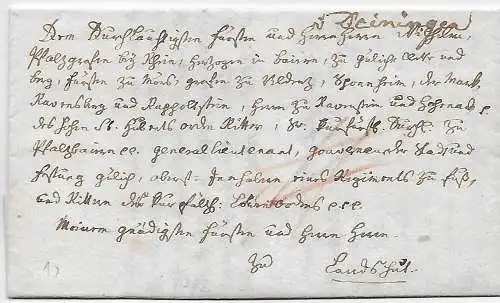 v. Deiningen
Dem Durchlauchtigsten Fürsten und Herrn Herrn Wilhelm,
Pfalzgrafen bey Rhein, Herzogen in baiern, zu Gülich Cleve und
berg, Fürsten zu Mörs, grafen zu Veldenz, Sponheim, der Mark,
Ravensberg und Rappoltstein, Herrn zu Ravenstein und Hohenack p.
des hohen St. Huberts orden Ritter, Sr. Kurfürstl. Durchl. zu
Pfalzbaiern pp. general lieutenant, gouverneur der Stadt und
Festung gülich, obrist Innhabern eines Regiments zu Fuß,
und Rittern des Kurpfälz. Löwenordens p.p.p.
Meinem gnädigsten Fürsten und Herrn Herrn.
Zu
Landshut.